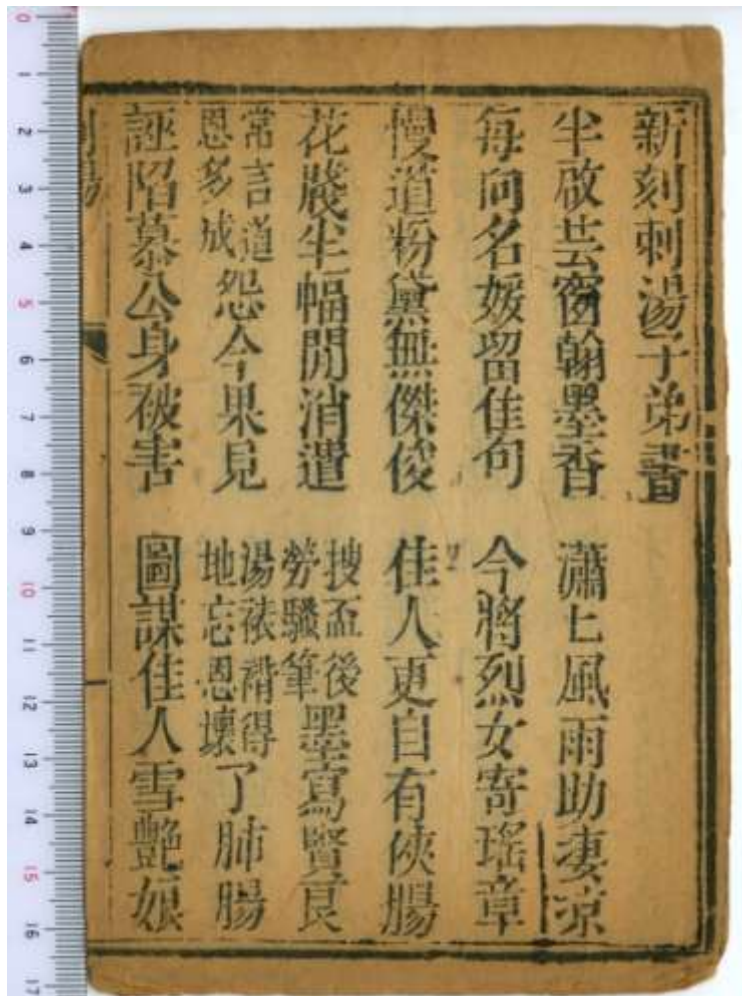 新刻刺湯子弟書
半啟芸窗翰墨香　瀟匕風雨助凄凉
每向名媛留佳句　今將烈女寄瑤章
慢道粉黛無傑俊　佳人更自有俠腸
花牋半幅閒消遣　搜盃後勞騷筆墨寫賢良
常言道恩多成怨今果見　湯裱褙得地忘恩壞了肺腸
誣陷慕公身被害　圖謀佳人雪艷娘
0 1 2 3 4 5 6 7 8 9 10 11 12 13 14 15 16 17